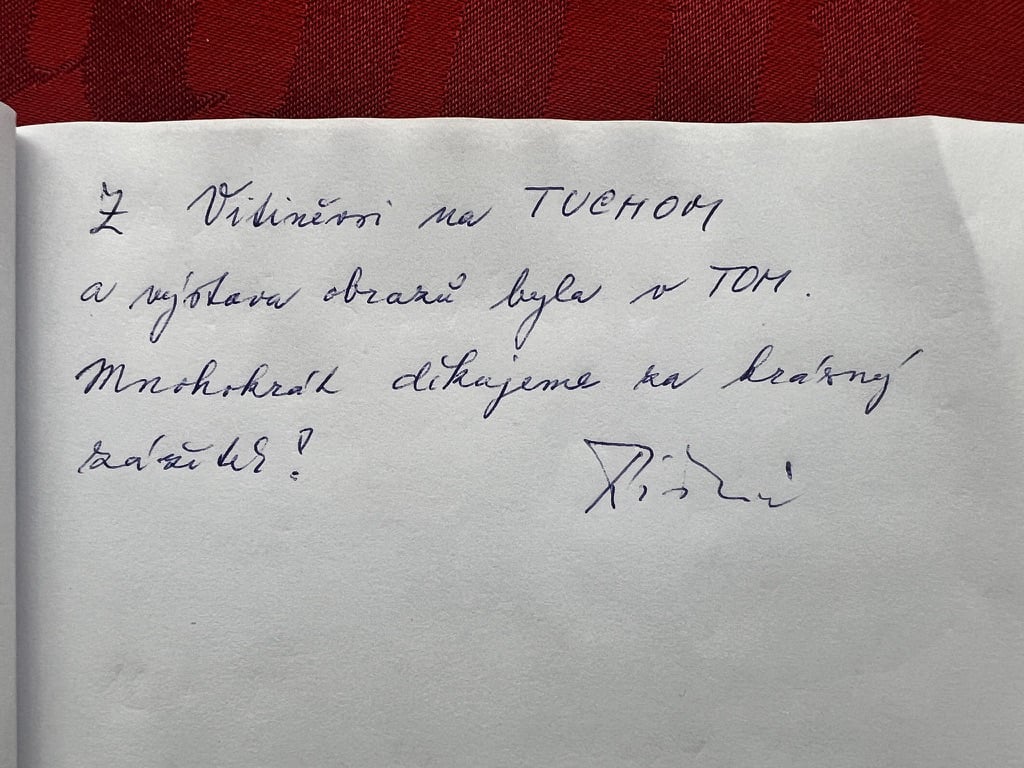 Z Vitiněvsi na TUCHOM
a výstava obrazů byla v TOM.
Mnohokrát děkujeme za krásný
zážitek!